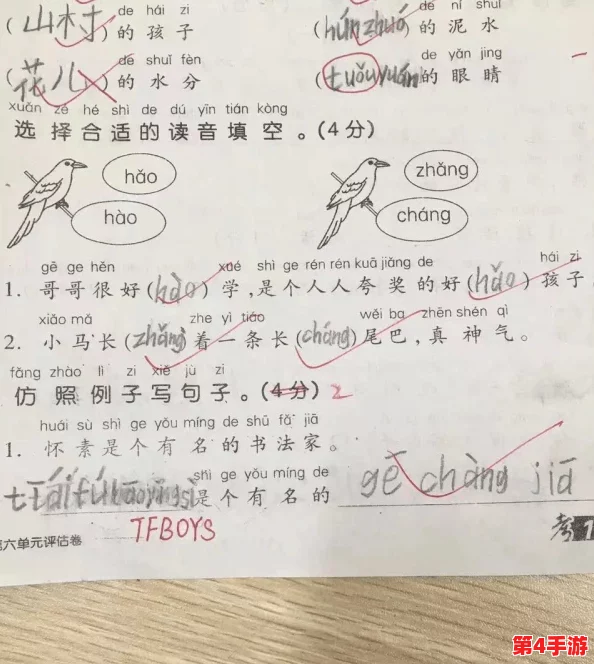 de hái zi de ní shuǐ
(山村)的孩子 (húnzhuó)的泥水
de shuǐ fèn de yǎn jing
(花儿)的水分 (tuǒuyuán)的眼睛
xuǎn zé hé shì de dú yīn tián kòng
选择合适的读音填空。(4分)
hǎo zhǎng
hào cháng
gē ge hěn xué shì ge rén rén kuā jiǎng de hái zi
1. 哥哥很好(hào)学,是个人人夸奖的好(hǎo)孩子
xiǎo mǎ zhe yì tiáo wěi ba zhēn shén qì
2. 小马长(zhǎng)着一条长(cháng)尾巴,真神气。
fǎng zhào lì zi xiě jù zi
仿照例子写句子。(4分) 2
huái sù shì ge yǒu míng de shū fǎ jiā
1. 怀素是个有名的书法家。
shì ge yǒu míng de
是个有名的 gē chàng jiā
TFBOYS
第六单元评估卷 考1
第4手游